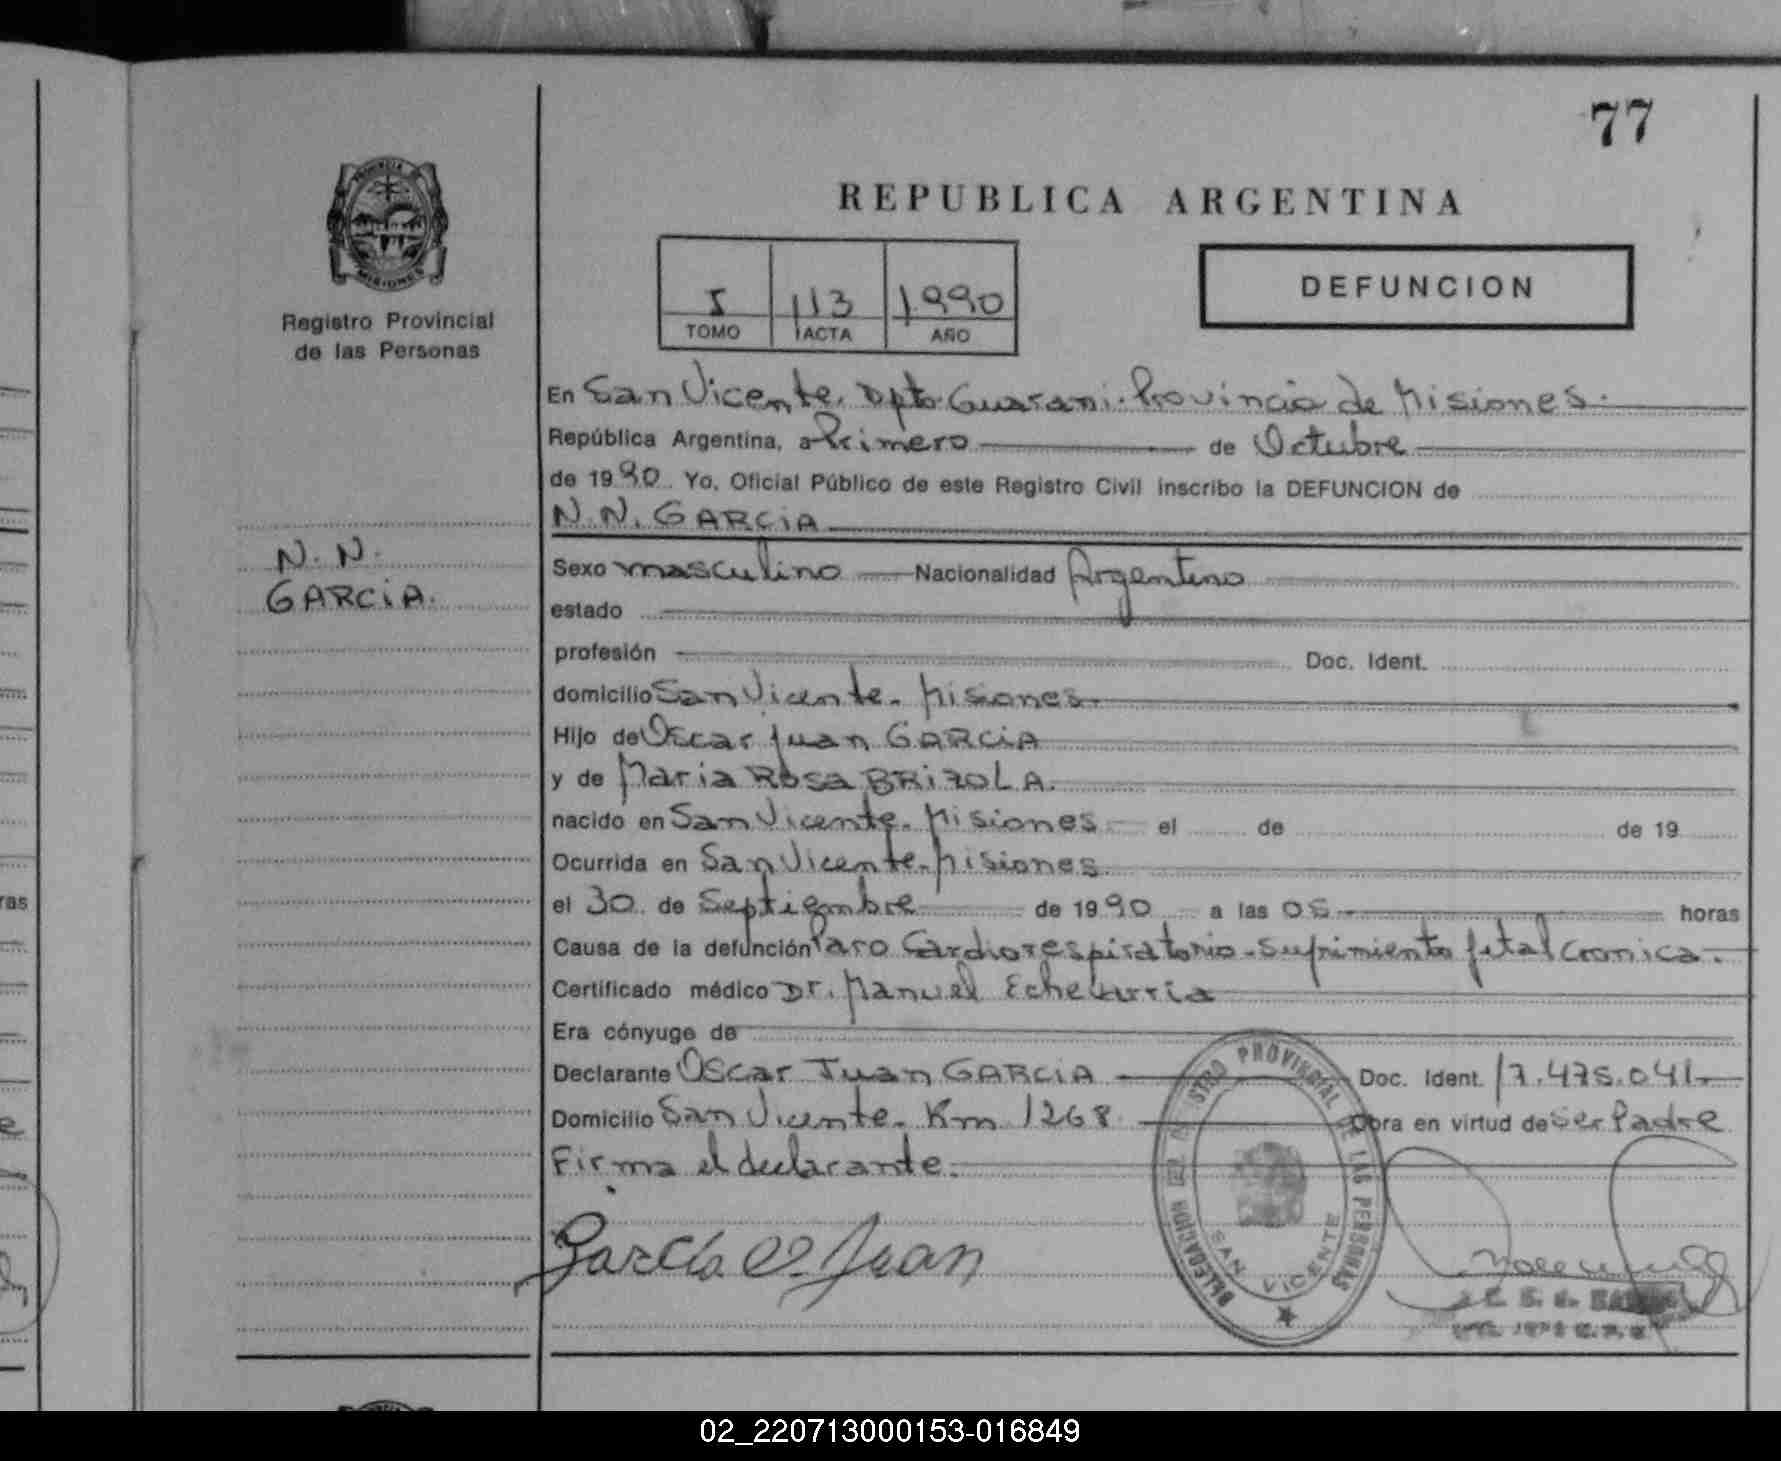 77
PROVINCIA DE
MISIONES
Registro Provincial
de las Personas
REPUBLICA ARGENTINA
I 113 1.990
TOMO ACTA AÑO
DEFUNCION
En San Vicente. Dpto. Guarani. Provincia de Misiones.
República Argentina, a Primero de Octubre
de 19 90 Yo, Oficial Público de este Registro Civil inscribo la DEFUNCION de
N. N. GARCiA
N. N.
GARCiA.
Sexo masculino Nacionalidad Argentino
estado
profesión Doc. Ident.
domicilio San Vicente. Misiones.
Hijo de Oscar Juan GARCiA
y de Maria Rosa BRiZOLA.
nacido en San Vicente. Misiones el de de 19
Ocurrida en San Vicente. Misiones
el 30 de Septiembre de 19 90 a las 05 horas
Causa de la defunción Paro Cardiorespiratorio. Sufrimiento fetal cronica.
Certificado médico Dr. Manuel Echevarria
Era cónyuge de
Declarante Oscar Juan GARCiA Doc. Ident. 17.475.041
Domicilio San Vicente. Km 1268 Obra en virtud de ser Padre
Firma el declarante.
García O. Juan
DELEGACION REGISTRO PROVINCIAL DE LAS PERSONAS
SAN VICENTE
ras
02_220713000153-016849